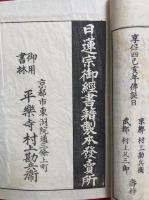 享保四己亥年佛誕日
京都 村上勘兵衛
武都 村上又三郎
壽梓
日蓮宗御經書籍製本發賣所
京都市東洞院通三條上町
御用
書林
平樂寺村上勘兵衞